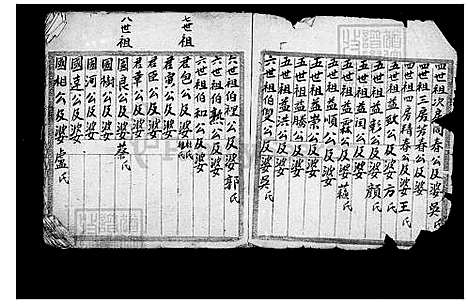 四世祖次房同春公及婆吳氏
四世祖三房芳春公及婆
四世祖四房精春公及婆王氏
五世祖益政公及婆方氏
五世祖益彰公及婆顏氏
五世祖益閏公及婆
五世祖益霖公及婆蘓氏
五世祖益順公及婆
五世祖益崇公及婆
五世祖益勝公及婆
五世祖益洪公及婆
六世祖伯復公及婆吳氏
六世祖伯裡公及婆郭氏
六世祖伯熟公及婆
六世祖伯和公及婆
七世祖
君包公及婆
君寅公及婆
君臣公及婆
君華公及婆
八世祖
國良公及婆蔡氏
國樹公及婆
國河公及婆
國遠公及婆
國相公及婆盧氏